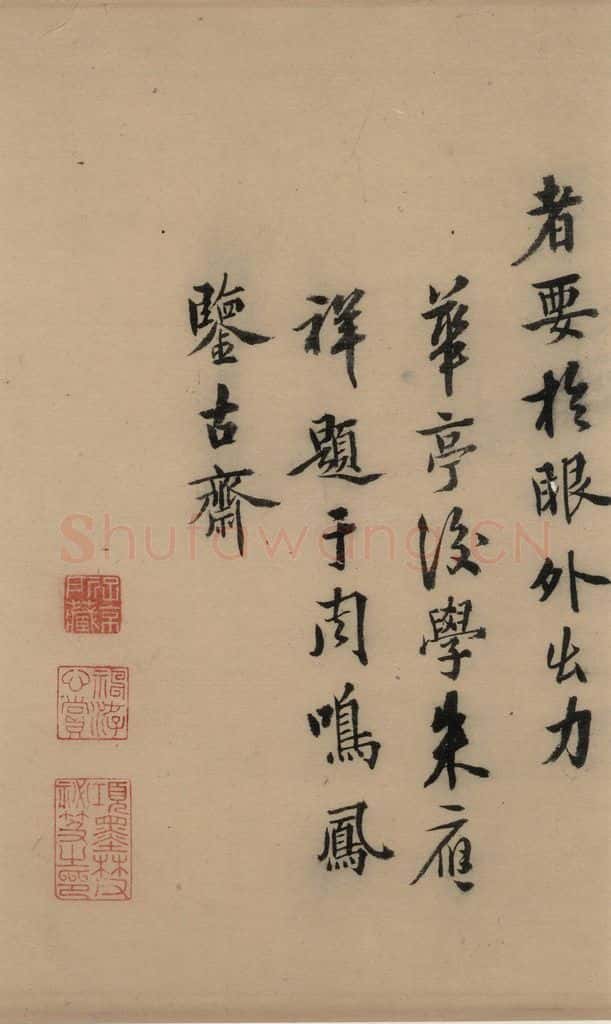 者要於眼外出力
華亭後學朱應
祥題于周鳴鳳
鑒古齋
神游心賞
項墨林父祕笈之印
Shufawang.CN